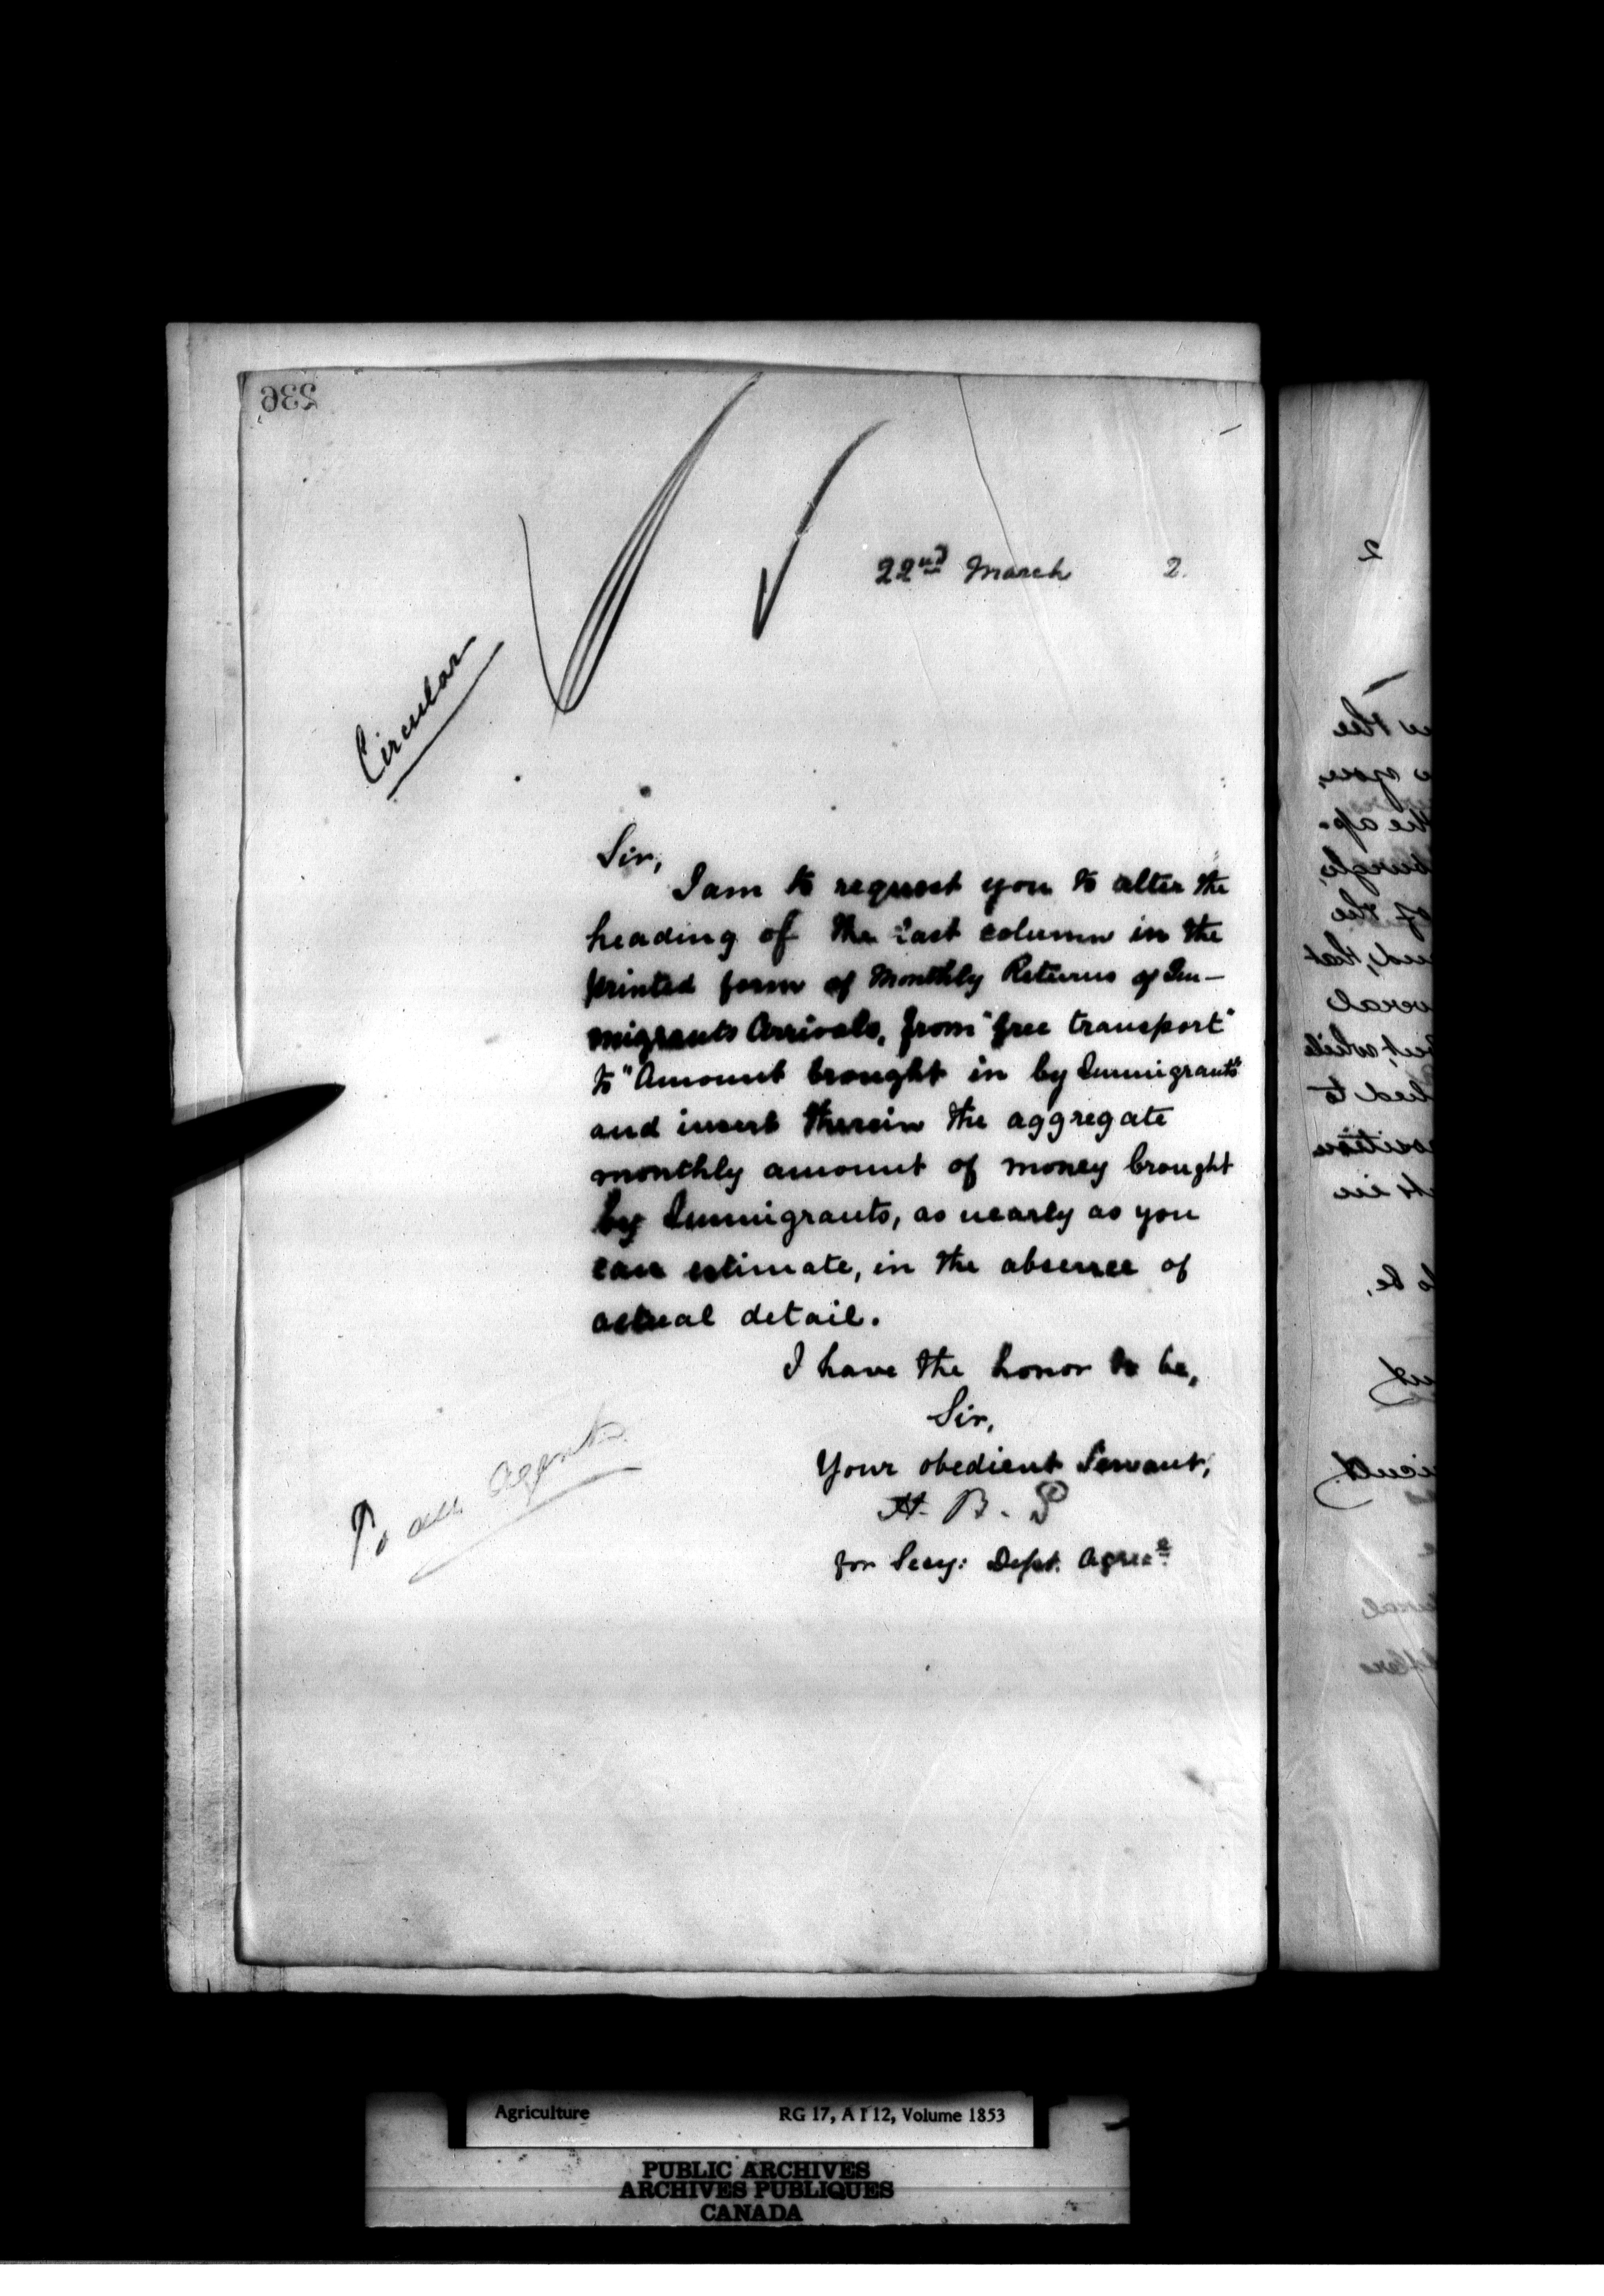 236
22nd March 2.
Circular
Sir,
I am to request you to alter the
heading of the last column in the
printed form of Monthly Returns of Im-
migrants Arrivals, from "free transport"
to "Amount brought in by Immigrants"
and insert therein the aggregate
monthly amount of money brought
by Immigrants, as nearly as you
can estimate, in the absence of
actual detail.
I have the honor to be,
Sir,
Your obedient Servant,
H. B. S
for Secy: Dept. Agrice.
To all agents
2
the
you,
the ap-
of the
that
while
to
in
to be,
Agriculture RG 17, A I 12, Volume 1853
PUBLIC ARCHIVES
ARCHIVES PUBLIQUES
CANADA